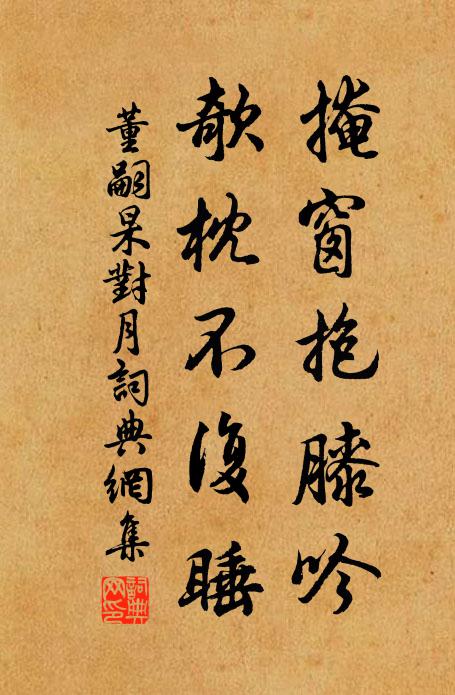 掩窗抱膝吟
欹枕不復睡
董嗣杲對月詞典網集
詞典網印